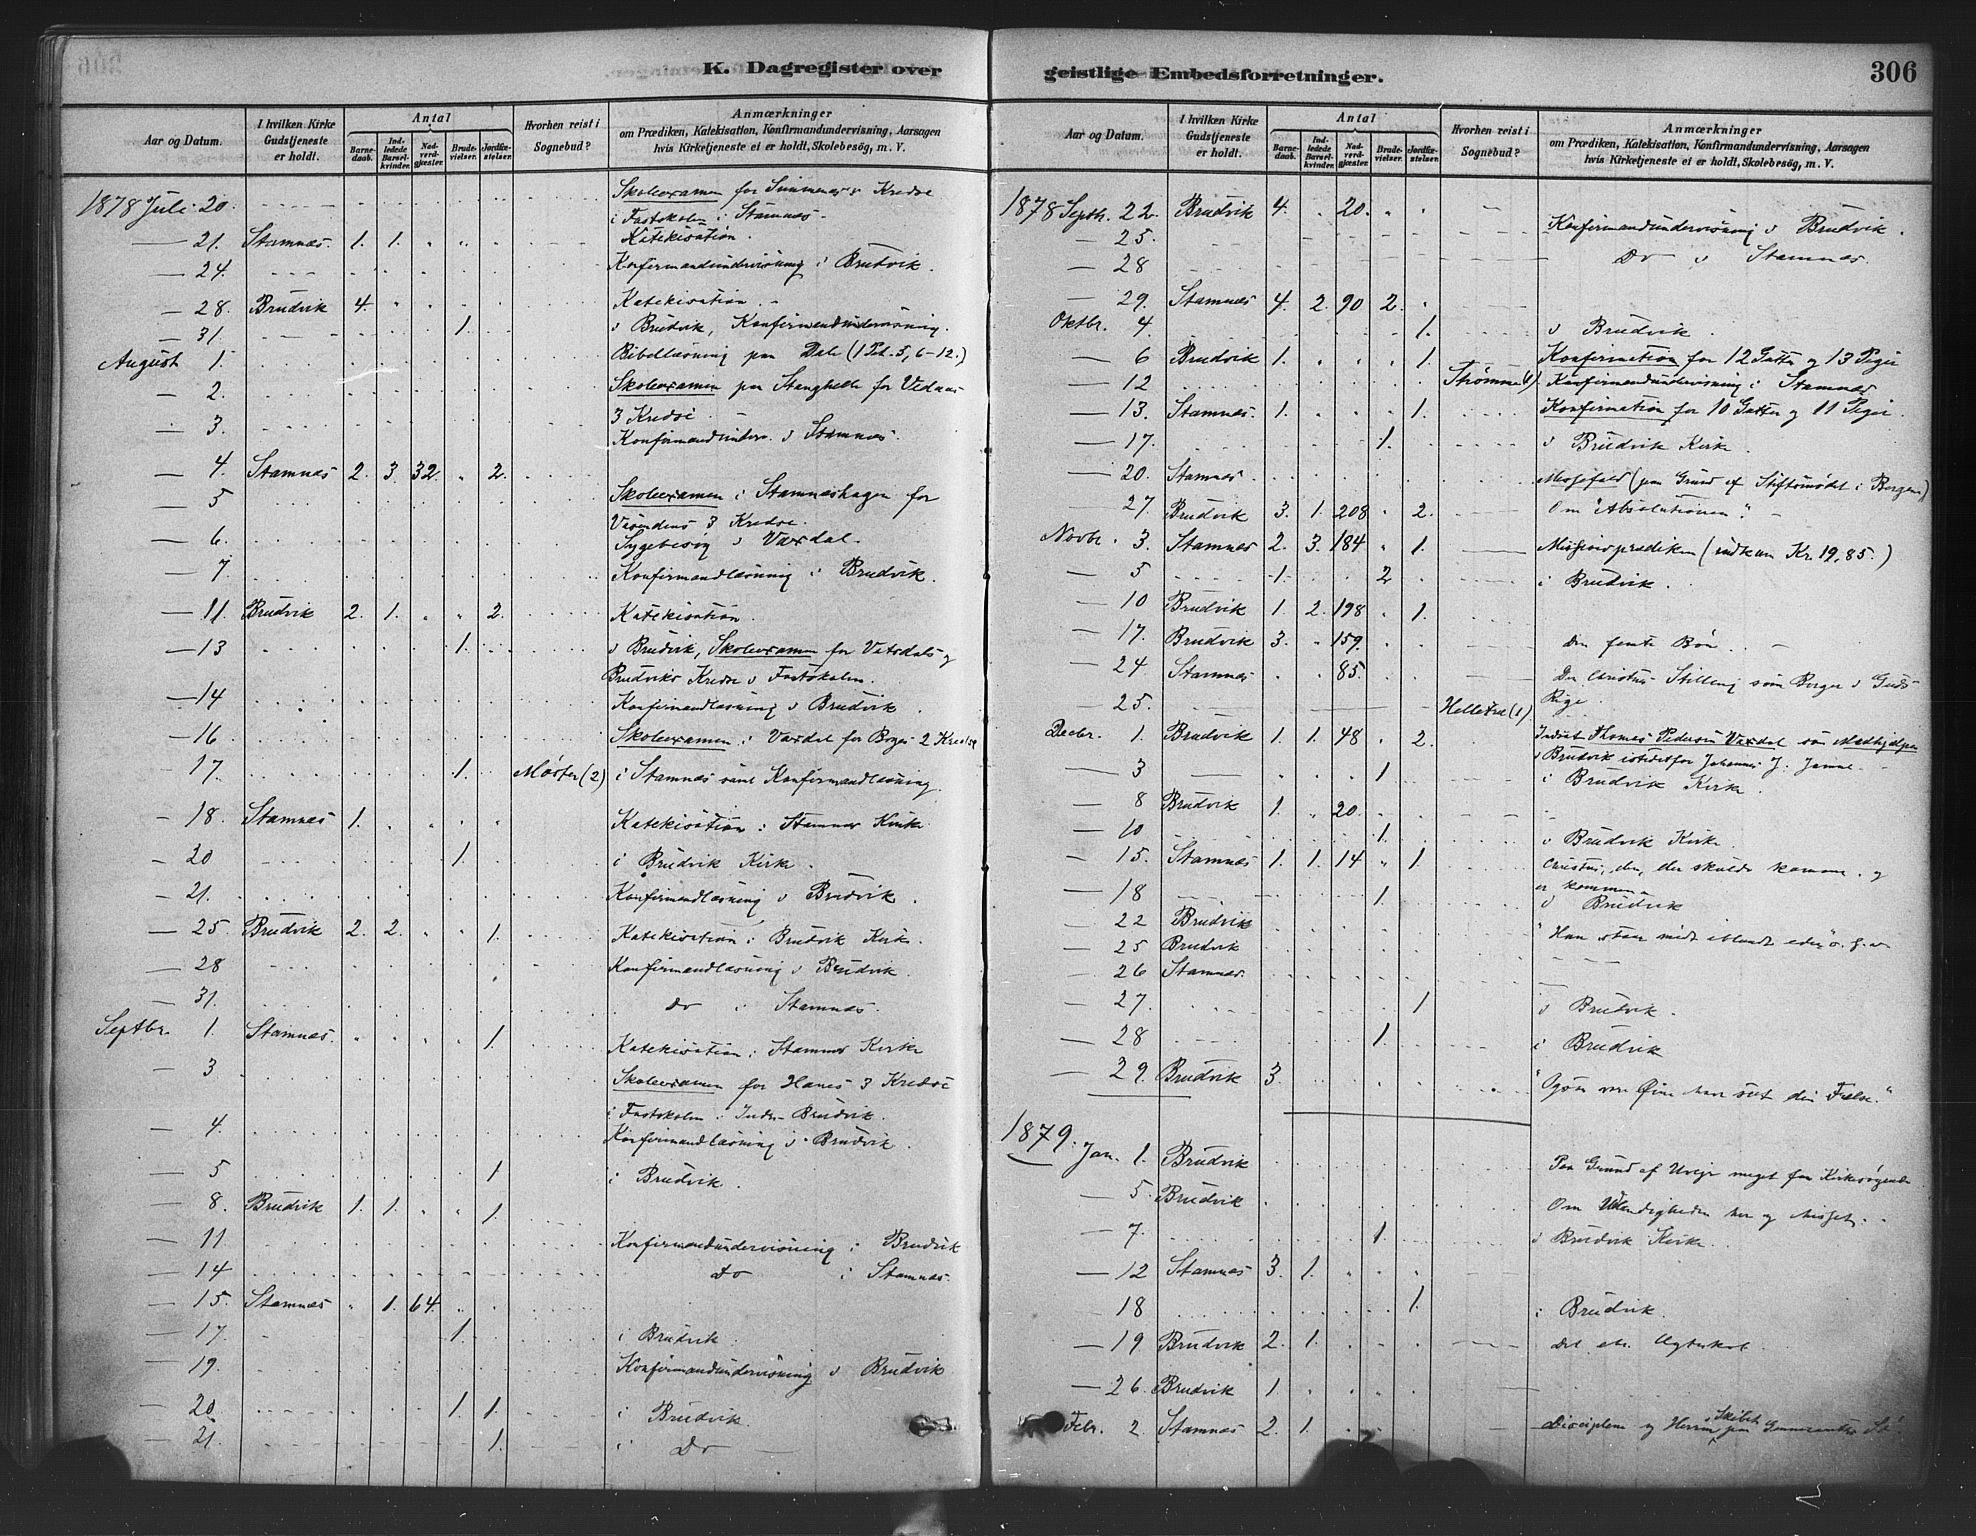 K. Dagregister over
Aar og Datum.
I hvilken Kirke Gudstjeneste er holdt.
Antal
Barnedaab. Indledede Barselkvinder. Nadverdgjester. Brudevielser. Jordfæstelser.
Hvorhen reist i Sognebud?
Anmærkninger
om Prædiken, Katekisation, Konfirmandundervisning, Aarsagen
hvis Kirketjeneste ei er holdt, Skolebesøg, m. V.
1878 Juli 20. Skoleexamen for Simmenæs Kreds
i Fastskolen i Stamnæs.
— 21. Stamnæs 1. 1. Katekisation.
— 24. Konfirmandundervisning i Brudvik.
— 28. Brudvik 4. Katekisation.
— 31. 1. i Brudvik, Konfirmandundervisning.
August 1. Bibellæsning paa Dale (1 Pet. 5, 6-12.)
— 2. Skoleexamen paa Stanghelle for Vednæs
3 Kredse.
— 3. Konfirmandunderv. i Stamnæs.
— 4. Stamnæs 2. 3. 32. 2.
— 5 Skoleexamen i Stamneshagen for
3 Kredse.
— 6. Sygebesøg i Vaxdal.
— 7 Konfirmandlæsning i Brudvik.
— 11. Brudvik 2. 1. 2. Katekisation.
— 13 1. i Brudvik, Skoleexamen for Vaxdals og
Brudviks Kredse i Fastskolen.
— 14 Konfirmandlæsning i Brudvik.
— 16. Skoleexamen i Vaxdal for Boge 2 Kredse
— 17. 1. Møster (2) i Stamnæs samt Konfirmandlæsning.
— 18. Stamnæs 1. Katekisation i Stamnæs Kirke
— 20 1. i Brudvik Kirke.
— 21. Konfirmandlæsning i Brudvik.
— 25. Brudvik 2. 2. 1. Katekisation i Brudvik Kirke.
— 28 Konfirmandlæsning i Brudvik.
— 31. Do i Stamnæs.
Septbr. 1. Stamnæs. 1. Katekisation i Stamnæs Kirke
— 3 Skoleexamen for Hanes 3 Kredse
i Fastskolen i Indre Brudvik.
— 4. Konfirmandlæsning i Brudvik.
— 5 1 i Brudvik.
— 8. Brudvik 1. 1. 1.
— 11 Konfirmandundervisning i Brudvik
— 14 Do i Stamnæs.
— 15. Stamnæs 1. 64.
— 17. 1. i Brudvik.
— 19. Konfirmandundervisning i Brudvik
— 20. 1. 1. i Brudvik.
— 21. 1. i Do
geistlige Embedsforretninger.
306
Aar og Datum.
I hvilken Kirke Gudstjeneste er holdt.
Antal
Barnedaab. Indledede Barselkvinder. Nadverdgjester. Brudevielser. Jordfæstelser.
Hvorhen reist i Sognebud?
Anmærkninger
om Prædiken, Katekisation, Konfirmandundervisning, Aarsagen
hvis Kirketjeneste ei er holdt, Skolebesøg, m. V.
1878 Septb. 22. Brudvik 4. 20.
— 25. Konfirmandundervisning i Brudvik.
— 28 Do i Stamnæs.
— 29. Stamnæs 4. 2. 90 2.
Oktbr. 4 1. i Brudvik.
— 6 Brudvik 1. 1. Konfirmation for 12 Gutter og 13 Piger
— 12 Strømme (1). Konfirmandundervisning i Stamnæs
— 13. Stamnæs. 1. 1. Konfirmation for 10 Gutter og 11 Piger.
— 17. 1. i Brudvik Kirke.
— 20 Stamnæs. Messefald (paa Grund af Stiftsmødet i Bergen)
— 27. Brudvik 3. 1. 208 2. Om "Absolutionen".
Novbr. 3. Stamnæs 2. 3. 184 1. Missionsprædiken (indkom Kr. 19,85.)
— 5 1. 2 i Brudvik.
— 10 Brudvik 1. 2. 198 1.
— 17. Brudvik 3. 159. Den femte Bøn.
— 24 Stamnæs 85. Den Christnes Stilling som Borger i Guds
Rige.
— 25. Helletræ (1)
Decbr. 1. Brudvik 1. 1. 48 2. Indsat Thomas Pedersen Vaxdal som Medhjælper
i Brudvik istedetfor Johannes J.
— 3 1 i Brudvik Kirke.
— 8 Brudvik 1. 20.
— 10 1. i Brudvik Kirke.
— 15. Stamnæs 1. 1. 14 1 Christus, den, der skulde komme og
er kommen
— 18 1. i Brudvik
— 22 Brudvik "Han staar midt iblandt eder" o. s. v.
— 25 Brudvik
— 26 Stamnæs.
— 27. 1 i Brudvik.
— 28 1. i Brudvik
— 29. Brudvik 3. "Ogsaa vore Øine have seet din Frelse."
1879. Jan. 1. Brudvik Paa Grund af Uveir meget faa Kirkesøgende
— 5 Brudvik Om Uelendigheden her og hisset.
— 7. 1. i Brudvik Kirke.
— 12 Stamnæs 3. 1.
— 18 1. i Brudvik.
— 19 Brudvik 2. 1. Det ottende
— 26. Brudvik 1.
Febr. 2. Stamnæs 2. 1. Disciplene og Herren i Skibet paa Genesareths Sø.